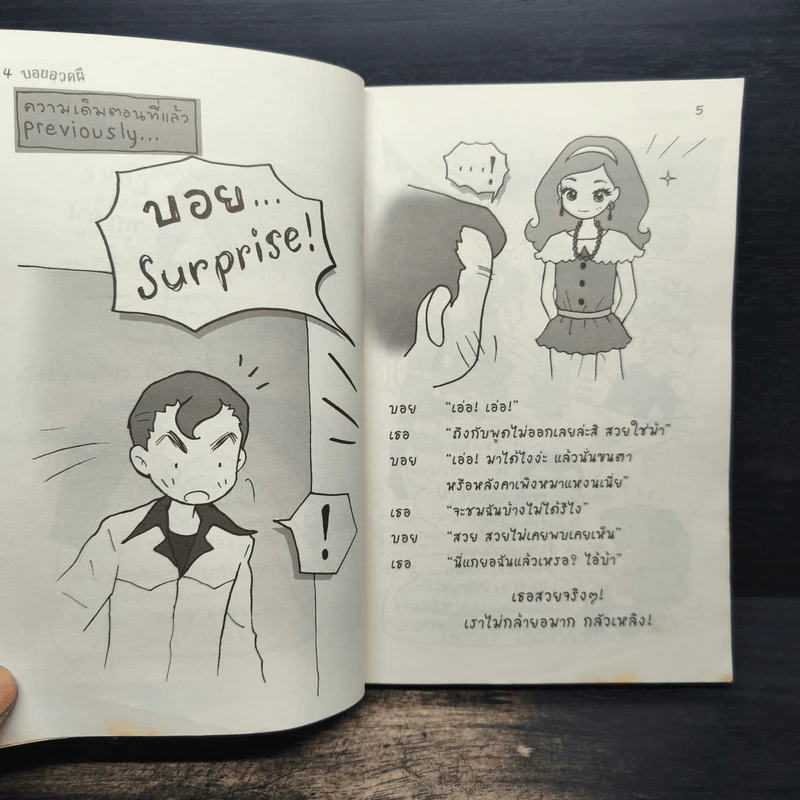 4 บอยอวดผี
ความเดิมตอนที่แล้ว
Previously...
บอย...
Surprise!
!
5
...!
บอย "เอ่อ! เอ่อ!"
เธอ "ถึงกับพูดไม่ออกเลยล่ะสิ สวยใช่ม้า"
บอย "เอ่อ! มาได้ไงง่ะ แล้วนั่นขนตา
หรือหลังคาเพิงหมาแหงนเนี่ย"
เธอ "จะชมฉันบ้างไม่ได้รึไง"
บอย "สวย สวยไม่เคยพบเคยเห็น"
เธอ "นี่แกยอฉันแล้วเหรอ? ไอ้บ้า"
เธอสวยจริงๆ!
เราไม่กล้ายอมาก กลัวเหลิง!